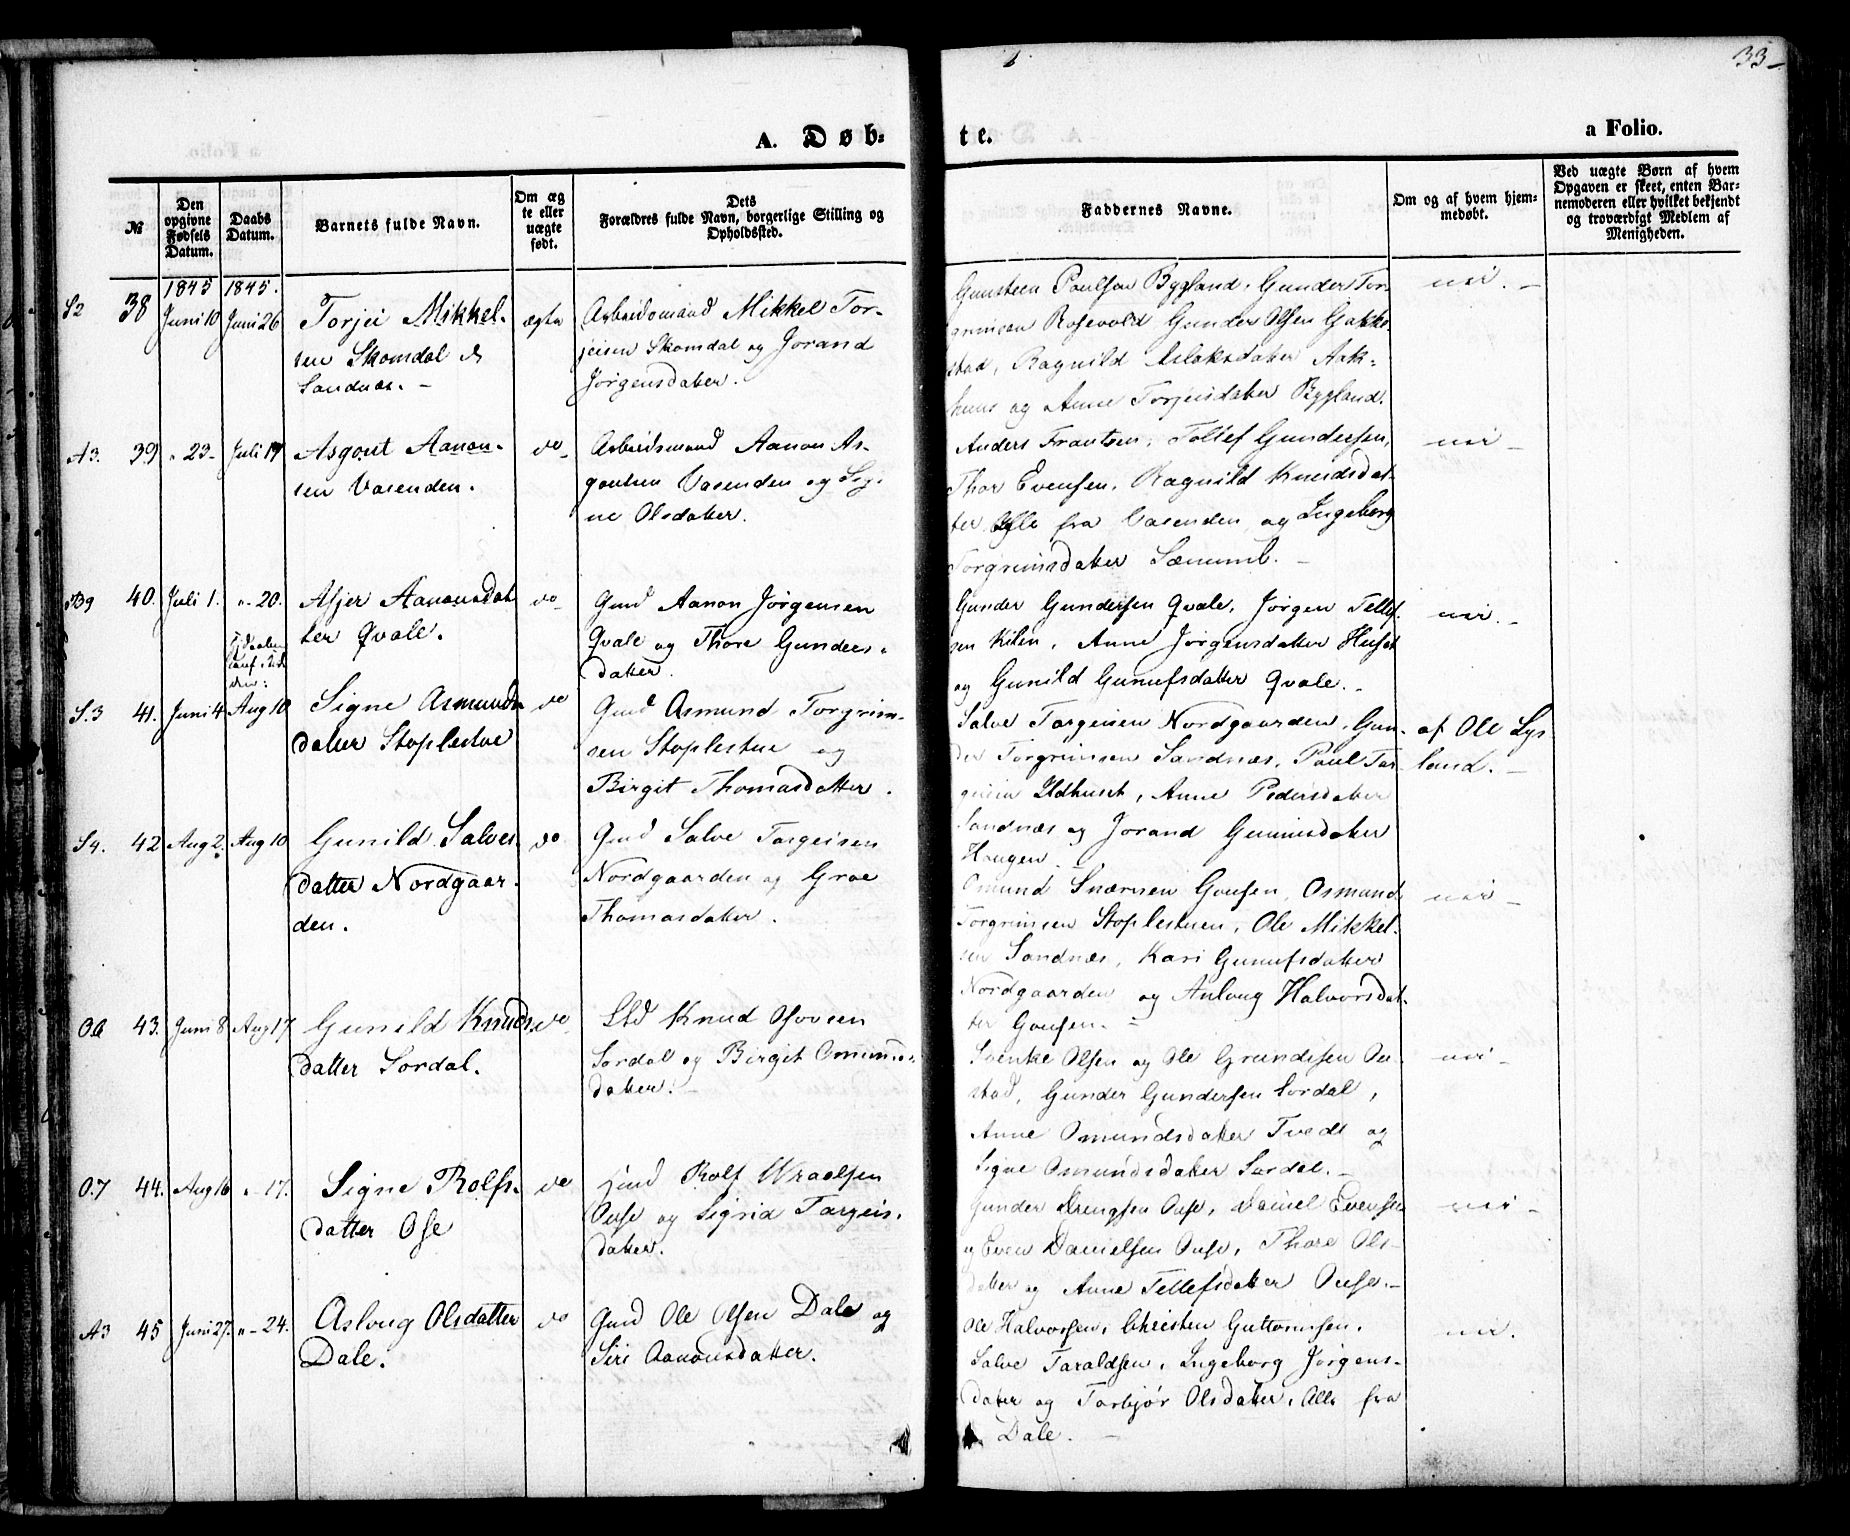 33
A. Døb=
te.
a Folio.
№
Den
opgivne
Fødsels
Datum.
Daabs
Datum.
Barnets fulde Navn.
Om æg
te eller
uægte
født.
Dets
Forældres fulde Navn, borgerlige Stilling og
Opholdssted.
Faddernes Navne.
Om og af hvem hjem=
medøbt.
Ved uægte Børn af hvem
Opgaven er skeet, enten Bar=
nemoderen eller hvilket bekjendt
og troværdigt Medlem af
Menigheden.
1845 1845.
S2 38 Juni 10 Juni 26
Torjei Mikkel-
sen Skomdal
Sandnæs. -
ægte
Arbeidsmand Mikkel Tor-
jeisen Skomdal og Jorand
Jörgensdatter.
Gunsteen Paulsen Bygland, Gunder Tor-
grimsen Rosevold Gunder Olsen
stad, Ragnild Aslaksdatter Aak-
huus og Anne Torjeisdatter Bygland.
nei. -
A3. 39 " 23- Juli 19
Asgout Aanon-
sen Vasenden.
do
Arbeidsmand Aanon As-
goutsen Vasenden og Sig-
ne Olsdatter.
Anders Frantsen, Tollef Gundersen,
Thor Evensen, Ragnild Knudsdat-
ter Alle fra Vasenden og Ingeborg
Torgrimsdatter
nei -
B9 40. Juli 1. " 20.
Asjer Aanonsdat
ter Qvale.
do
Gmd Aanon Jörgensen
Qvale og Thore Gunders-
datter.
Gunder Gundersen Qvale, Jörgen Tellef-
sen Kilen, Anne Jörgensdatter Huset
og Gunild Gunufsdatter Qvale. -
nei. -
S.3 41. Juni 4 Aug 10
Signe Asmunds
datter Stoplestue
do
Gmd Osmund Torgrim-
sen Stoplestue og
Birgit Thomasdatter.
Salve Targeisen Nordgaarden, Gun-
der Torgrimsen Sandnæs, Paul Tar-
geisen Ildhuset, Anne Pedersdatter
Sandnæs og Jorand Gunnsdatter
Haugen.
af Ole Lys
land. -
S4. 42 Aug 2. Aug 10
Gunild Salves-
datter Nordgaar-
den.
do
Gmd Salve Targeisen
Nordgaarden og Groe
Thomasdatter.
Osmund Snærsen Gousen, Osmund
Torgrimsen Stoplestuen, Ole Mikkel-
sen Sandnæs, Kari Gunufsdatter
Nordgaarden og Anloug Halvorsdat-
ter Gousen. -
nei -
43. Juni 8 Aug 17
Gunild Knuds-
datter Sordal.
do
Knud
Sordal og Birgit Omunds-
datter. -
Svenke Olsen og Ole Grundesen Ou-
stad, Gunder Gundersen Sordal,
Anne Omundsdatter Tvedt og
Signe Omundsdatter Sordal. -
nei -
O.7 44. Aug 16 " 17.
Signe Rolfs-
datter Ose
do
Gmd Rolf Wraalsen
Ouse og Sigrid Targeis-
datter.
Gunder Drengsen Ouse, Daniel Evensen
og Even Danielsen Ouse, Thore Ols-
datter og Anne Tellefsdatter Ouse. -
nei -
A3 45 Juni 27. " 24.
Asloug Olsdatter
Dale.
do
Gmd Ole Olsen Dale og
Siri Aanonsdatter.
Ole Halvorsen, Christen Guttormsen,
Salve Taraldsen, Ingeborg Jörgens-
datter og Torbjör Olsdatter, Alle fra
Dale. -
nei.